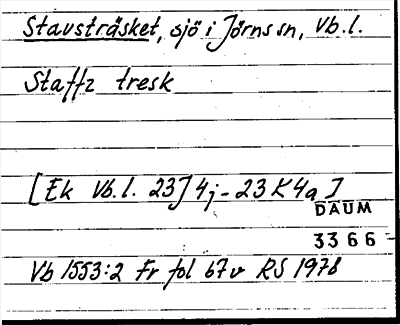 Stavsträsket, sjö i Jörns sn, Vb.l.
Staffz tresk
[Ek Vb.l. 23J4j - 23K4a]
DAUM
3366
Vb 1553:2 Fr fol 67v RS 1978